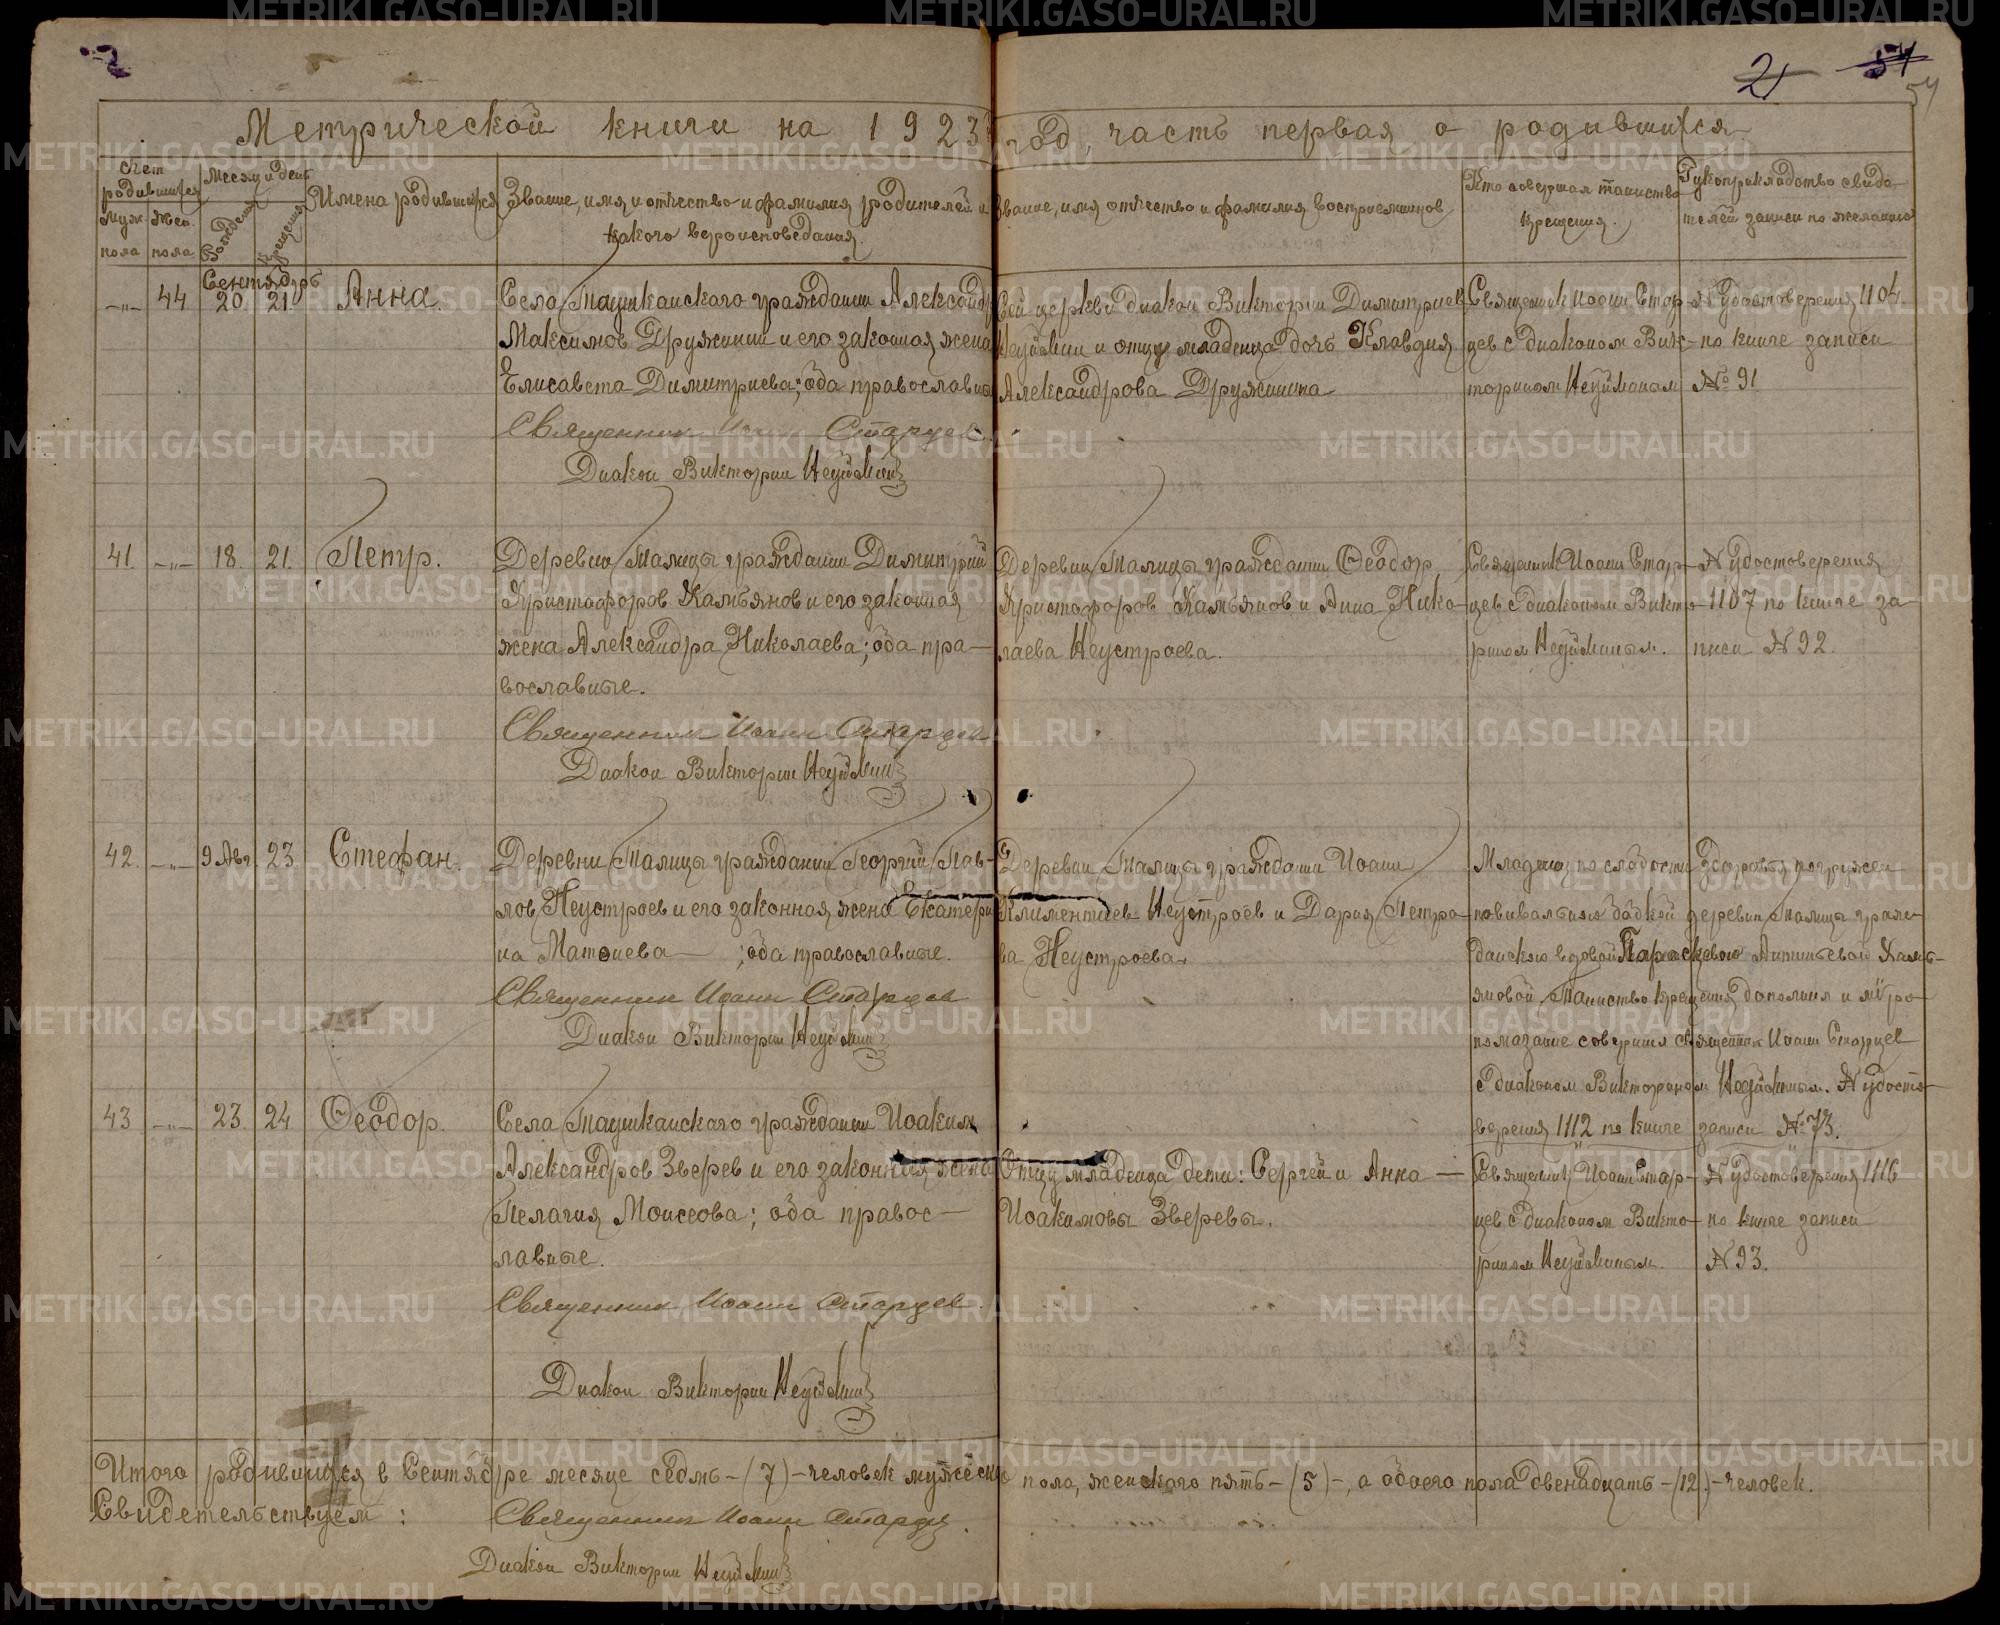 2
21
54
54
Метрической книги на 1923й год, часть первая о родившихся
Счет родившихся
Муж. пола
Жен. пола
Месяц и день
Рождения
Крещения
Имена родившихся
Звание, имя и отчество и фамилия родителей и
какого вероисповедания
Звание, имя отчество и фамилия восприемников
Кто совершал таинство
крещения.
Рукоприкладство свиде-
телей записи по желанию
Сентябрь
-"- 44 20 21. Анна.
Села Таушканского гражданин Александр
Максимов Дружинин и его законная жена
Елисавета Димитриева; оба православные
Священник Иоанн Старцев.
Диакон Викторин Неуймин
Сей церкви диакон Викторин Димитриев
Неуймин и отцу младенца дочь Клавдия
Александрова Дружинина
Священник Иоанн Стар-
цев с диаконом Вик-
торином Неуйминым
№ удостоверения 1104.
по книге записи
№ 91
41. -"- 18. 21. Петр.
Деревни Талицы гражданин Димитрий
Христофоров Хамьянов и его законная
жена Александра Николаева; оба пра-
вославные.
Священник Иоанн Старцев
Диакон Викторин Неуймин
Деревни Талицы гражданин Феодор
Христофоров Хамьянов и Анна Нико-
лаева Неустроева.
Священник Иоанн Стар-
цев с диаконом Викто-
рином Неуйминым.
№ удостоверения
1107 по книге за-
писи № 92.
42. -"- 9 Авг. 23. Стефан.
Деревни Талицы гражданин Георгий Пав-
лов Неустроев и его законная жена Екатери
на Матфиева — ; оба православные.
Священник Иоанн Старцев
Диакон Викторин Неуймин
Деревни Талицы гражданин Иоанн
Климентиев Неустроев и Дария Петро-
ва Неустроева.
Младенец по слабости здоровья погружен
повивальной бабкой деревни Талицы граж-
данскою вдовой Параскевою Антипьевой Хамь-
яновой. Таинство крещения дополнил и миро-
помазание совершил священник Иоанн Старцев
с диаконом Викторином Неуйминым. № удосто-
верения 1112 по книге записи № 73.
43. -"- 23. 24. Феодор.
Села Таушканского гражданин Иоаким
Александров Зверев и его законная жена
Пелагия Моисеова; оба правос-
лавные.
Священник Иоанн Старцев.
Диакон Викторин Неуймин
Отцу младенца дети: Сергей и Анна —
Иоакимовы Зверевы.
Священник Иоанн Стар-
цев с диаконом Викто-
рином Неуйминым.
№ удостоверения 1116
по книге записи
№ 93.
Итого родившихся в Сентябре месяце седмь-(7)-человек мужеского пола, женского пять-(5)-, а обоего пола двенадцать-(12)-человек.
Свидетельствуем: Священник Иоанн Старцев.
Диакон Викторин Неуймин
METRIKI.GASO-URAL.RU